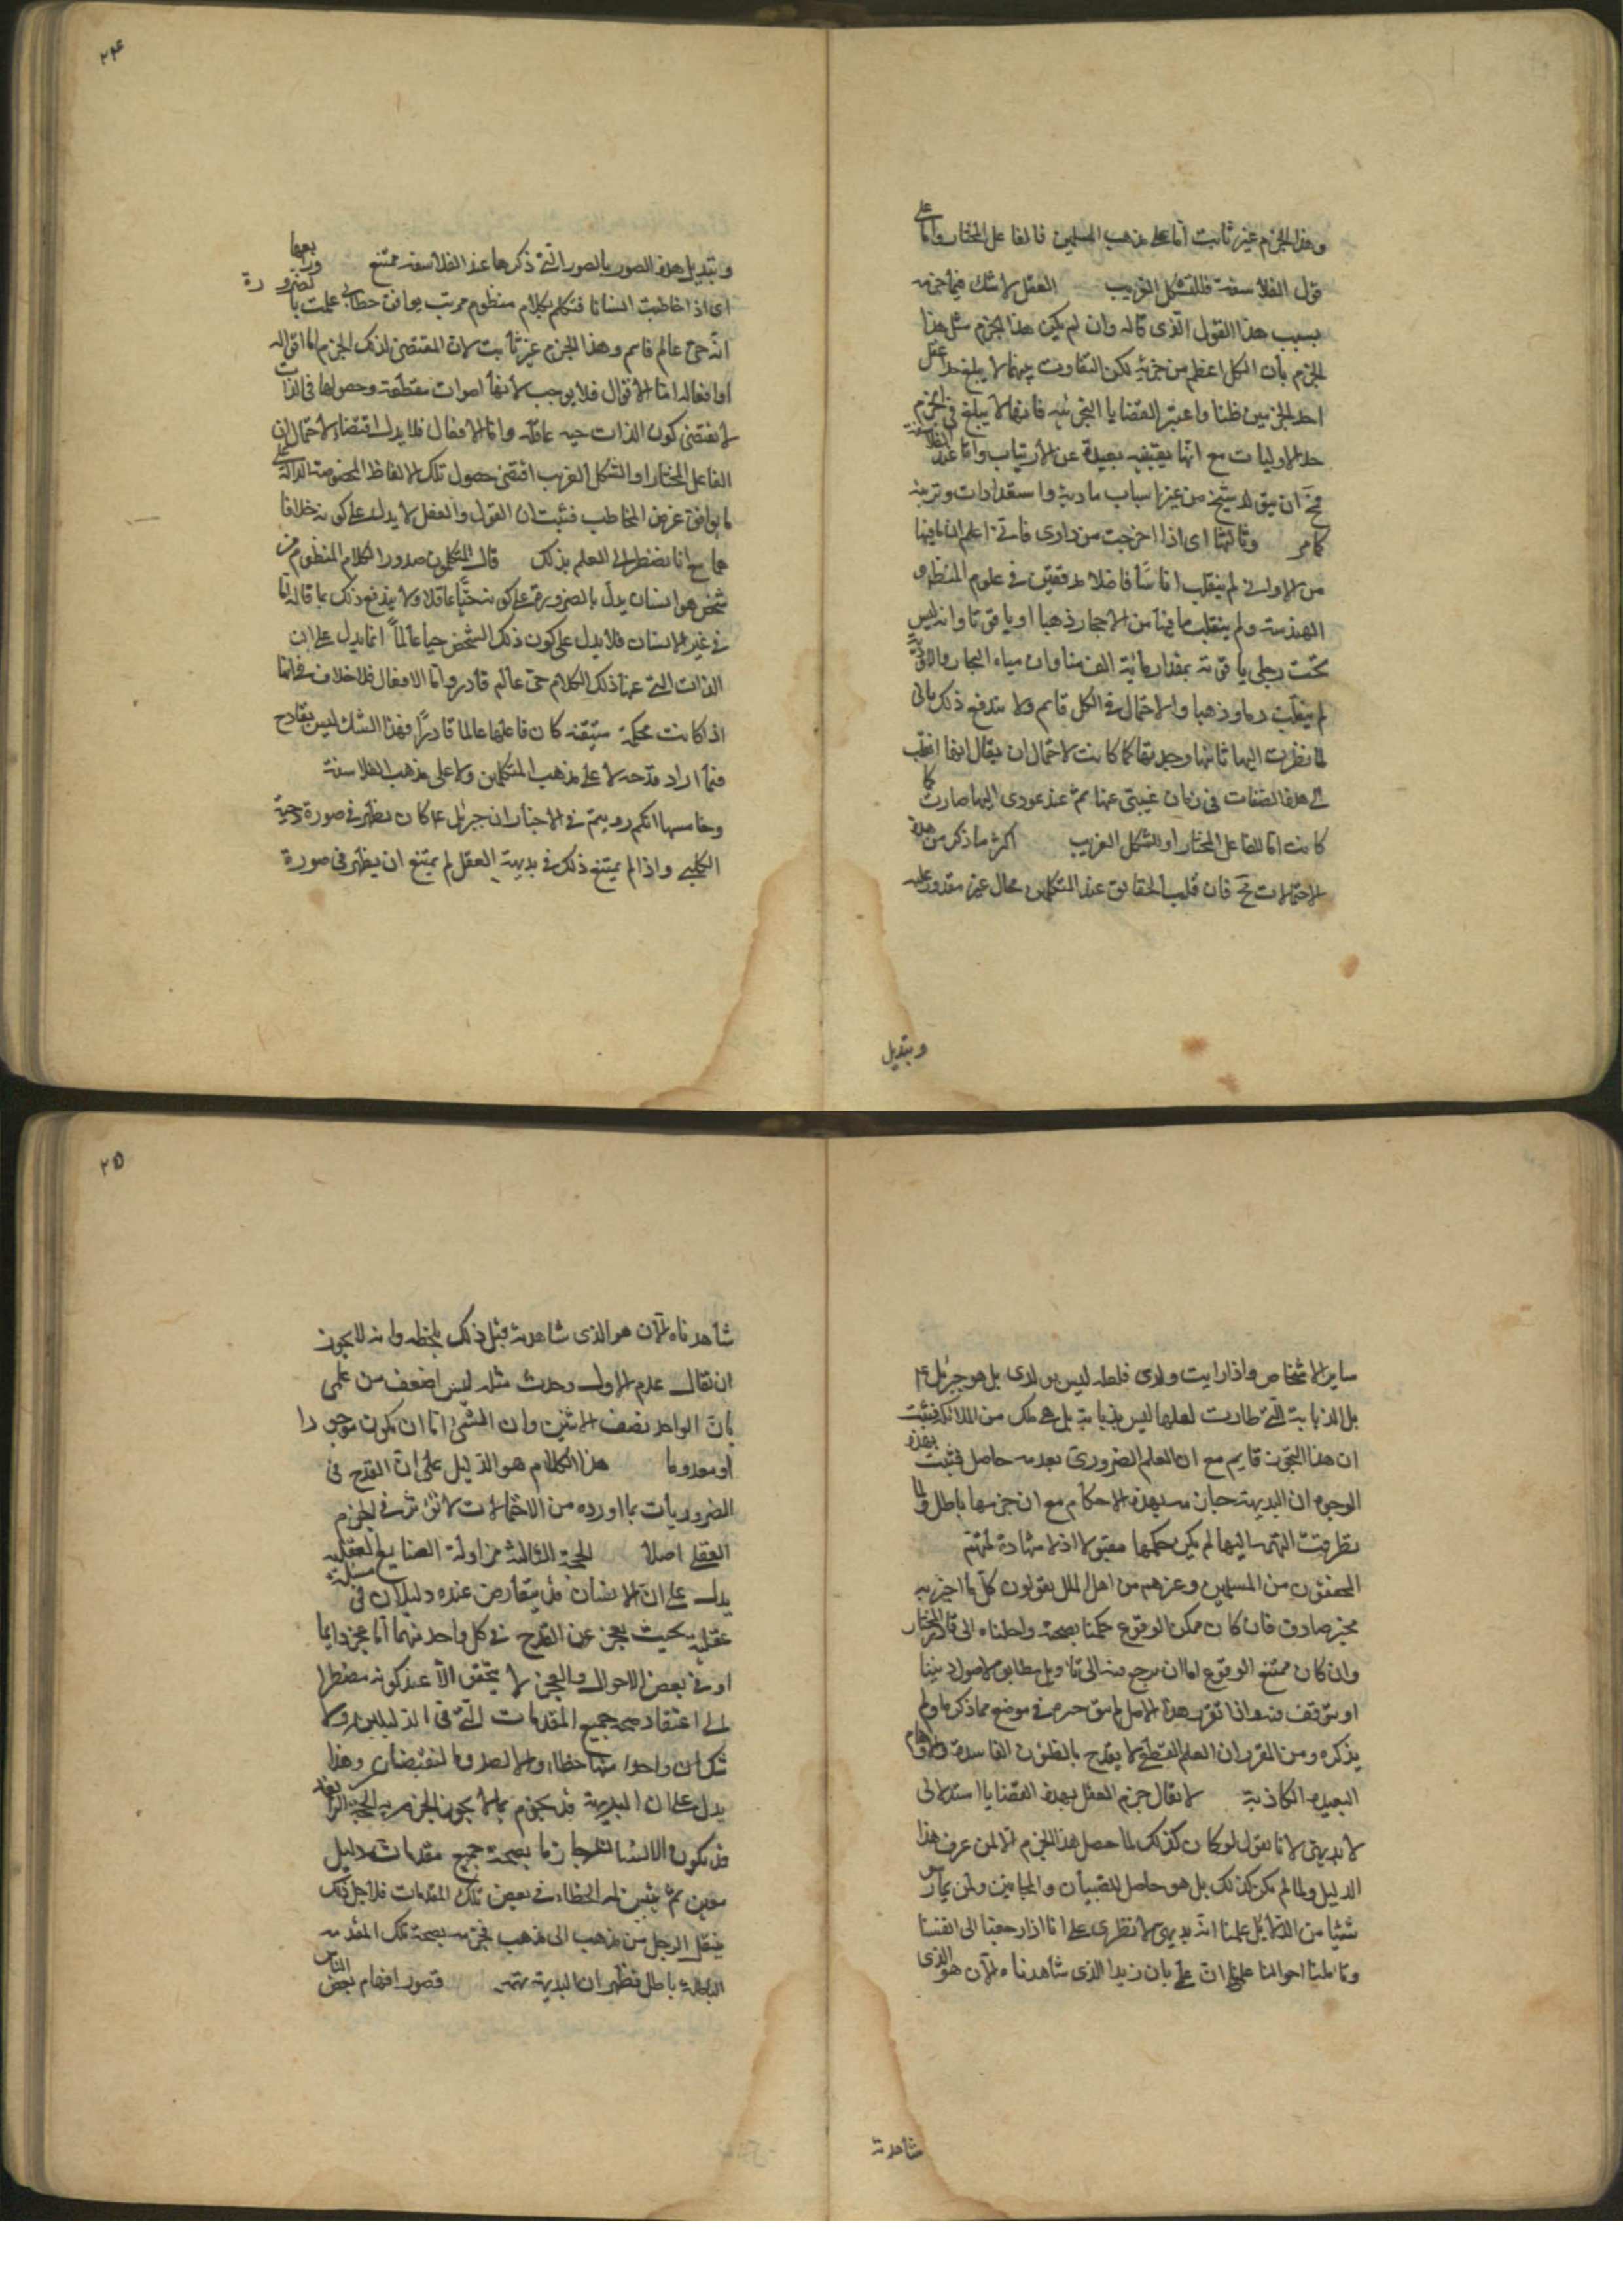 وهذا الجزم غير ثابت أما على مذهب المسلمين فالفاعل المختار وأما على
قول الفلاسفة فللتشكل الغريب العقل لا شك فيما جزمه
بسبب هذا القول الذى قاله وان لم يكن هذا الجزم مثل هذا
الجزم بأن الكل اعظم من جزئه لكن التفاوت بينهما لا يبلغ حدا عقل
احد الجزمين ظنا واعتبر القضايا التجربية فانها لا يبلغ فى الجزم
حد الاوليات مع انها يقينية بعيدة عن الارتياب واما عند الفلاسفة
فمح ان يتولد شيخ من غير اسباب مادية واستعدادات وتربية
كما مر وثالثها اى اذا خرجت من دارى فانى اعلم ان ما فيها
من الاوانى لم ينقلب اناسًا فاضلا مدققين فى علوم المنطق و
الهندسة ولم ينقلب ما فيها من الاحجار ذهبا او ياقوتا وانه ليس
تحت رجلى ياقوتة بمقدار مائة الف منا وان مياه البحار والاودية
لم ينقلب دما وذهبا والاحتمال فى الكل قايم ولا يندفع ذلك بانى
لما نظرت اليها ثانيا وجدتها كما كانت لاحتمال ان يقال انها انقلبت
الى هذه الصفات فى زمان غيبتى عنها ثم عند عودى اليها صارت كما
كانت اما للفاعل المختار او للشكل الغريب اكثر ما ذكر من هذه
الاحتمالات مح فان قلب الحقايق عند المتكلمين محال غير مقدور عليه
وتبديل
٢٤
وتبديل هذه الصور بالصور التى ذكرها عند الفلاسفة ممتنع ورابعها
اى اذا خاطبت انسانا فتكلم بكلام منظوم مرتب يوافق خطابى علمت بالضرورة
انه حى عالم فاهم وهذا الجزم غير ثابت لان المقتضى لذلك الجزم اما اقواله
او افعاله اما الاقوال فلا يوجب لانها اصوات مقطعة وحصولها فى الذات
لا يقتضى كون الذات حية عاقلة واما الافعال فلا يدل اقتضاء لاحتمال ان
الفاعل المختار او الشكل الغريب اقتضى حصول تلك الالفاظ المخصوصة الدالة على
ما يوافق غرض المخاطب فثبت ان القول والفعل لا يدل على كونه خلافا
هما مع انا نضطر الى العلم بذلك قال المتكلمون صدور الكلام المنظوم من
شخص هو انسان يدل بالضرورة على كونه حيًّا عاقلا ولا يندفع ذلك بما قاله اما
فى غير الانسان فلا يدل على كون ذلك الشخص حيا عالماً انما يدل على ان
الذات التى عنها ذلك الكلام حى عالم قادر واما الافعال فلا خلاف فى انها
اذا كانت محكمة متقنة كان فاعلها عالما قادرًا فهذا الشك ليس بقادح
فيما اراد قدحه لا على مذهب المتكلمين ولا على مذهب الفلاسفة
وخامسها انكم رويتم فى الاخبار ان جبرئل ع كان يظهر فى صورة دحية
الكلبى واذا لم يمتنع ذلك فى بديهة العقل لم يمتنع ان يظهر فى صورة
ساير الاشخاص واذا رايت ولدى فلعله ليس بولدى بل هو جبرئل ع
بل الذبابة التى طارت لعلها ليس بذبابة بل هى ملك من الملائكة فثبت
ان هذا التجويز قايم مع ان العلم الضرورى بعدمه حاصل فثبت بهذه
الوجوه ان البديهة جازمة بهذه الاحكام مع ان جزمها باطل ولما
تطرقت التهمة اليها لم يكن حكمها مقبولا اذ لا شهادة لمتهم
المحققون من المسلمين وغيرهم من اهل الملل يقولون كل ما اخبر به
مخبر صادق فان كان ممكن الوقوع حكمنا بصحته واحلناه الى قادر المختار
وان كان ممتنع الوقوع اما ان نرجع فيه الى تاويل مطابق لاصول ديننا
او نتوقف فيه واذا تقرر هذا الاصل لم يبق حرص فى موضع مما ذكره ولم
يذكره ومن المقرر ان العلم القطعى لا يقدح بالظنون الفاسدة والاوهام
البعيدة الكاذبة لا يقال جزم العقل بهذه القضايا استدلالى
لا بديهى لانا نقول لو كان كذلك لما حصل هذا الجزم الا لمن عرف هذا
الدليل ولما لم يكن كذلك بل هو حاصل للصبيان والمجانين ولمن يمارس
شيئا من الدلائل علمنا انه بديهى لا نظرى على انا اذا رجعنا الى انفسنا
وتاملنا احوالنا علمنا ان علمى بان زيدا الذى شاهدناه الآن هو الذى
شاهدته
٢٥
شاهدناه الآن هو الذى شاهدته قبل ذلك بلحظة وانه لا يجوز
ان يقال عدم الاول وحدث مثله ليس اضعف من علمى
بان الواحد نصف الاثنين وان الشىء اما ان يكون موجودا
او معدوما هذا الكلام هو الدليل على ان القدح فى
الضروريات بما اورده من الاحتمالات لا تؤثر فى الجزم
العقلى اصلا الحجة الثالثة مزاولة الصنايع العقلية
يدل على ان الانسان قد يتعارض عنده دليلان فى مسئلة
عقلية بحيث يعجز عن القدح فى كل واحد منهما اما عجزا دايما
او فى بعض الاحوال والعجز لا يتحقق الا عند كونه مضطرا
الى اعتقاد صحة جميع المقدمات التى فى الدليلين ولا
شك ان واحدا منها خطاء والا لصدق النقيضان وهذا
يدل على ان البديهة قد يجزم بما لا يجوز الجزم به الحجة الرابعة
قد يكون الانسان جازما بصحة جميع مقدمات دليل
معين ثم يتبين له الخطاء فى بعض تلك المقدمات فلاجل ذلك
ينتقل الرجل من مذهب الى مذهب فجزمه بصحة تلك المقدمة
الباطلة باطل فظهر ان البديهة متهمة قصور افهام بعض الناس